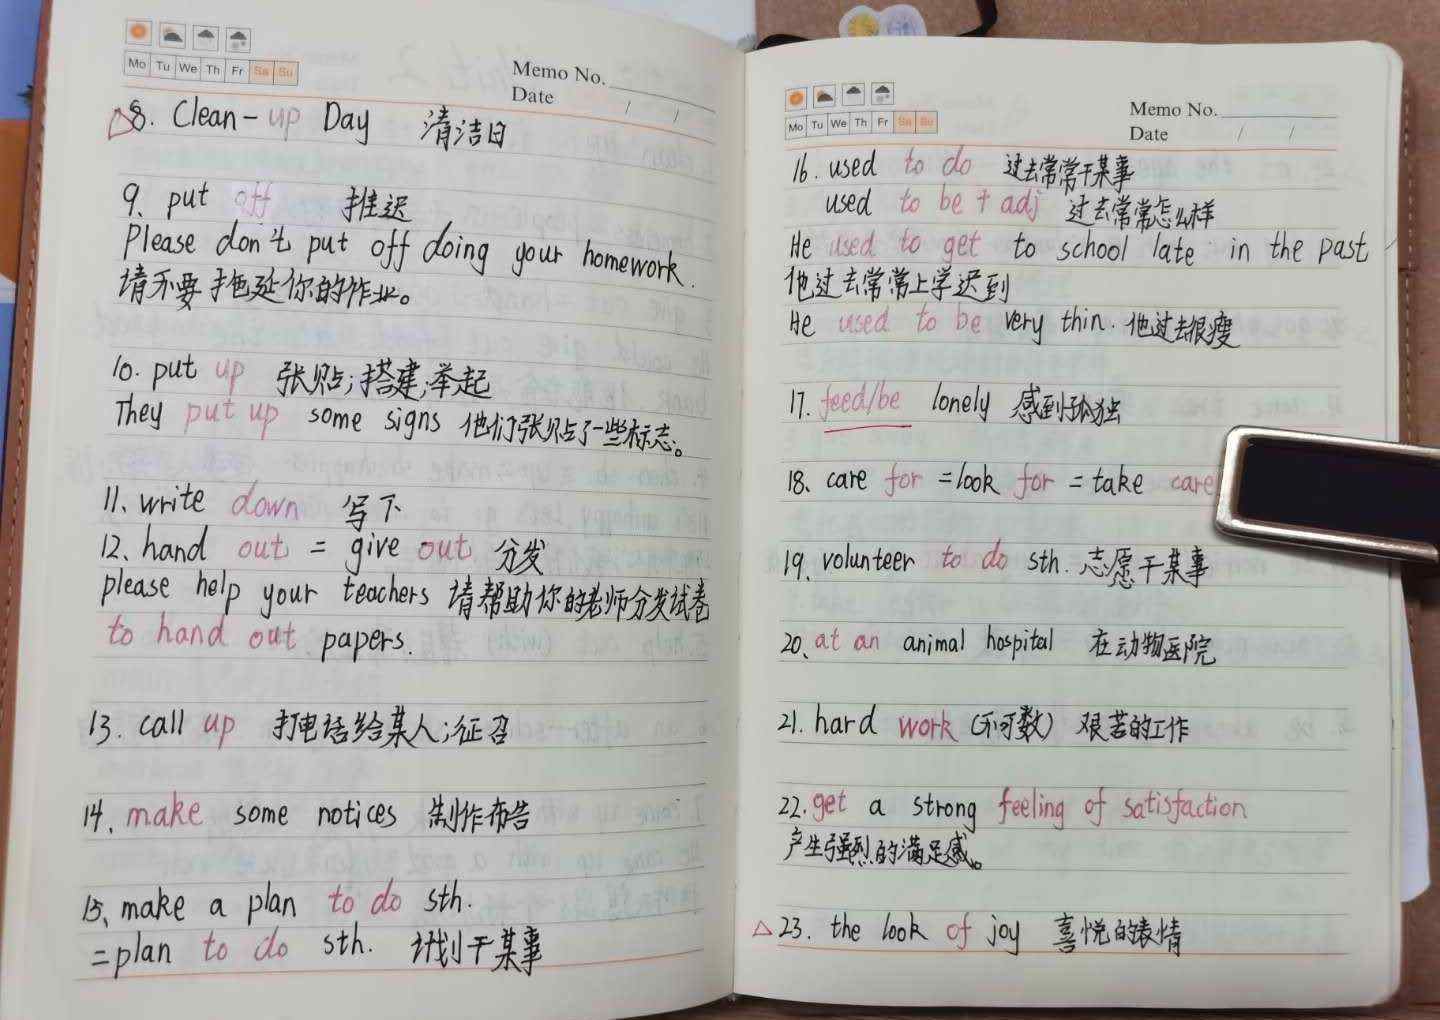 Mo Tu We Th Fr Sa Su
Memo No.
Date / /
8. Clean-up Day 清洁日
9. put off 推迟
Please don't put off doing your homework.
请不要拖延你的作业。
10. put up 张贴;搭建;举起
They put up some signs 他们张贴了一些标志。
11. write down 写下
12. hand out = give out 分发
please help your teachers 请帮助你的老师分发试卷
to hand out papers.
13. call up 打电话给某人;征召
14. make some notices 制作布告
15. make a plan to do sth.
=plan to do sth. 计划干某事
Mo Tu We Th Fr Sa Su
Memo No.
Date / /
16. used to do 过去常常干某事
used to be + adj 过去常常怎么样
He used to get to school late in the past
他过去常常上学迟到
He used to be very thin. 他过去很瘦
17. feed/be lonely 感到孤独
18. care for =look for = take care
19. volunteer to do sth. 志愿干某事
20. at an animal hospital 在动物医院
21. hard work (不可数) 艰苦的工作
22. get a strong feeling of satisfaction
产生强烈的满足感。
23. the look of joy 喜悦的表情